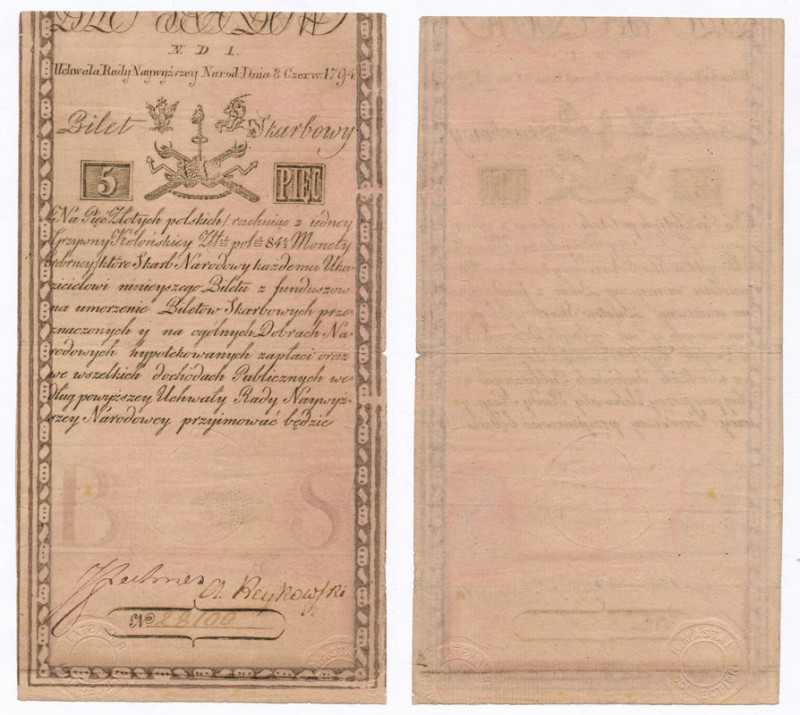 N D 1.
Uchwała Rady Naywyższey Narod: Dnia 8 Czerw: 1794
Bilet Skarbowy
5 PIĘĆ
Na Pięć Złotych polskich / rachuiąc z iedney
Grzywny Kolońskiey Zł: pol: 84 Monety
Srebrney / które Skarb Narodowy każdemu Uka-
zicielowi ninieyszego Biletu z funduszow
na umorzenie Biletów Skarbowych prze-
znaczonych y na ogólnych Dobrach Na-
rodowych hypotekowanych zapłaci oraz
we wszelkich dochodach Publicznych we-
dług powyższey Uchwały Rady Naywyż-
szey Narodowey przyimować będzie
B S
A. Reykowski
No 28100